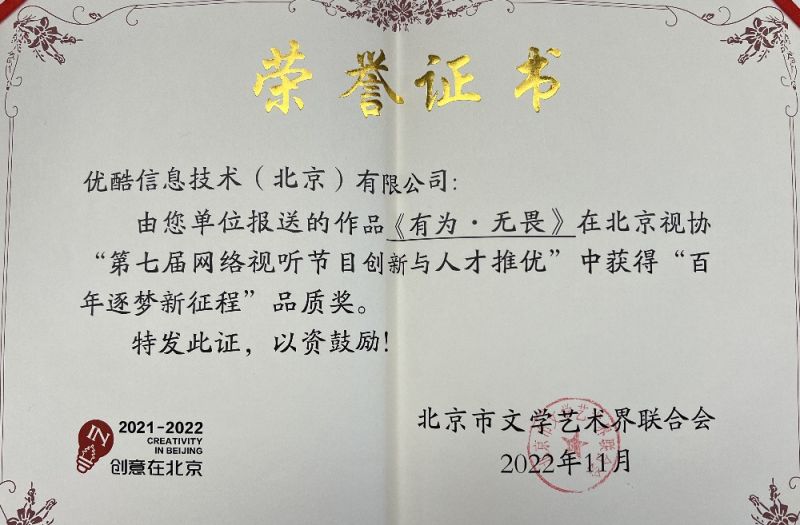 荣誉证书
优酷信息技术（北京）有限公司：
由您单位报送的作品《有为·无畏》在北京视协
“第七届网络视听节目创新与人才推优”中获得“百
年逐梦新征程”品质奖。
特发此证，以资鼓励！
IN
2021-2022
CREATIVITY
IN BEIJING
创意在北京
北京市文学艺术界联合会
2022年11月
北京市文学艺术界联合会